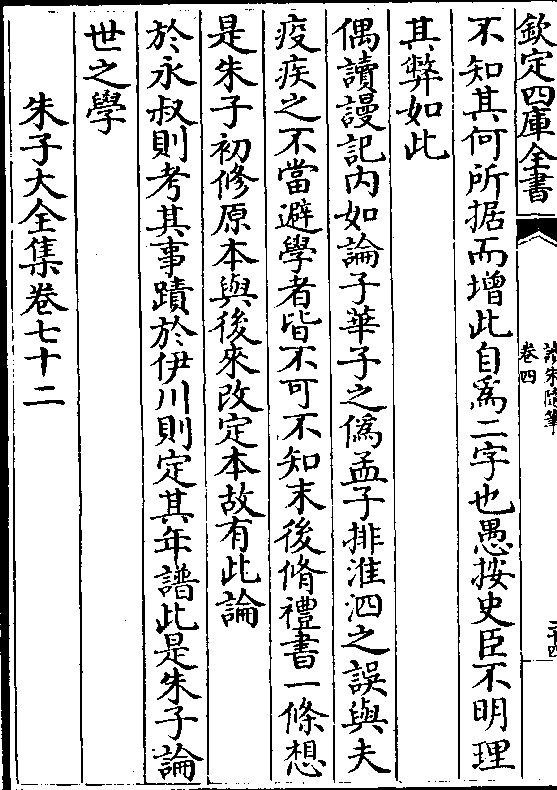 欽定四庫全書
讀朱隨筆
卷四
二十四
不知其何所据而增此自為二字也愚按史臣不明理
其弊如此
偶讀謾記内如論子華子之偽孟子排淮泗之誤與夫
疫疾之不當避學者皆不可不知末後脩禮書一條想
是朱子初修原本與後來改定本故有此論
於永叔則考其事蹟於伊川則定其年譜此是朱子論
世之學
朱子大全集卷七十二